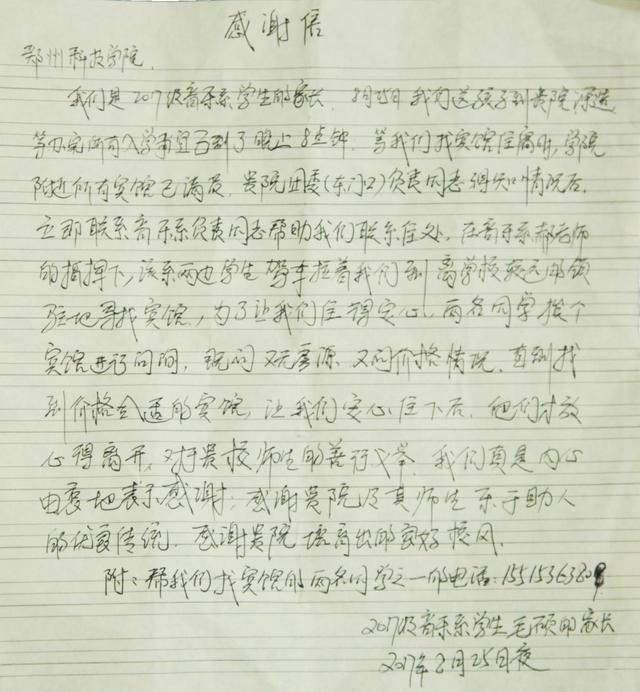 感谢信
郑州科技学院
我们是2017级音乐系学生的家长.8月25日我们送孩子到贵院深造
等办完所有入学事宜后到了晚上8点钟.等我们找宾馆住宿时,学院
附近所有宾馆已满员.贵院团委(东门口)负责同志得知情况后,
立即联系音乐系负责同志帮助我们联系住处.在音乐系郝老师
的指挥下,该系两边学生驾车拉着我们到离学校较远的
驻地寻找宾馆,为了让我们住得安心,两名同学挨个
宾馆进行问询,既问又无房源又问价格情况.直到找
到价格合适的宾馆,让我们安心住下后.他们才放
心得离开,对于贵校师生的善行义举.我们真是内心
由衷地表示感谢;感谢贵院及其师生乐于助人
的优良传统.感谢贵院培育出的良好校风.
附:帮我们找宾馆的两名同学之一的电话:1551536380
2017级音乐系学生毛硕的家长
2017年8月25日夜